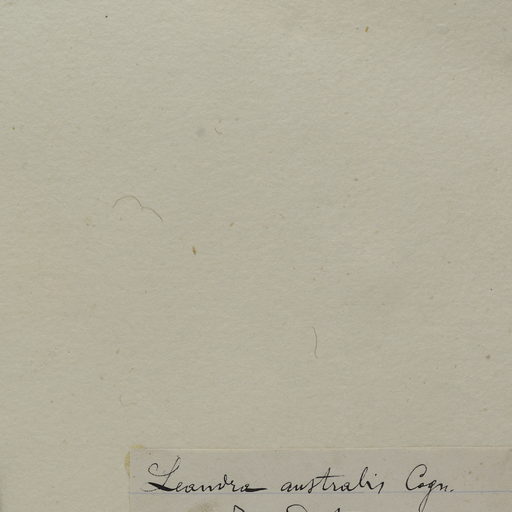 Leandra australis Cogn.